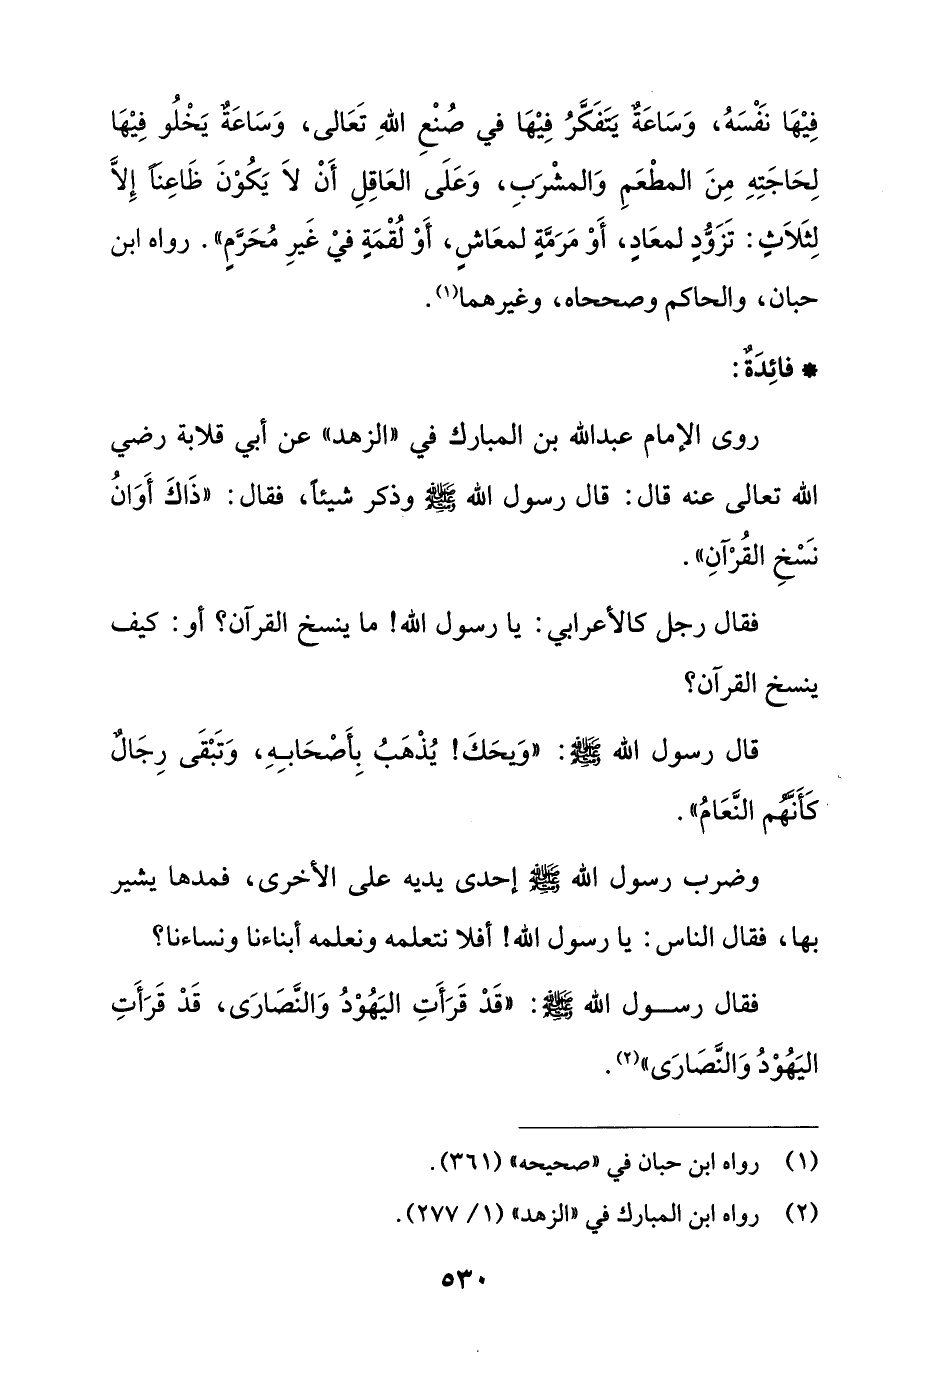 فِيْهَا نَفْسَهُ، وَسَاعَةٌ يَتَفَكَّرُ فِيْهَا في صُنْعِ اللهِ تَعَالى، وَسَاعَةٌ يَخْلُو فِيْهَا
لِحَاجَتِهِ مِنَ المطْعَمِ وَالمشْرَبِ، وَعَلَى العَاقِلِ أَنْ لاَ يَكُوْنَ ظَاعِنَاً إِلاَّ
لِثَلاَثٍ: تَزَوُّدٍ لمعَادٍ، أَوْ مَرَمَّةٍ لمعَاشٍ، أَوْ لُقْمَةٍ فيْ غَيرِ مُحَرَّمٍ». رواه ابن
حبان، والحاكم وصححاه، وغيرهما(١).
* فائِدَةٌ:
روى الإمام عبدالله بن المبارك في «الزهد» عن أبي قلابة رضي
الله تعالى عنه قال: قال رسول الله ﷺ وذكر شيئاً، فقال: «ذَاكَ أَوَانُ
نَسْخِ القُرْآنِ».
فقال رجل كالأعرابي: يا رسول الله! ما ينسخ القرآن؟ أو: كيف
ينسخ القرآن؟
قال رسول الله ﷺ: «وَيحَكَ! يُذْهَبُ بِأَصْحَابِهِ، وَتَبْقَى رِجَالٌ
كَأَنَّهُم النَّعَامُ».
وضرب رسول الله ﷺ إحدى يديه على الأخرى، فمدها يشير
بها، فقال الناس: يا رسول الله! أفلا نتعلمه ونعلمه أبناءنا ونساءنا؟
فقال رسـول الله ﷺ: «قَدْ قَرَأَتِ اليَهُوْدُ وَالنَّصَارَى، قَدْ قَرَأَتِ
اليَهُوْدُ وَالنَّصَارَى»(٢).
(١) رواه ابن حبان في «صحيحه» (٣٦١).
(٢) رواه ابن المبارك في «الزهد» (١/ ٢٧٧).
٥٣٠